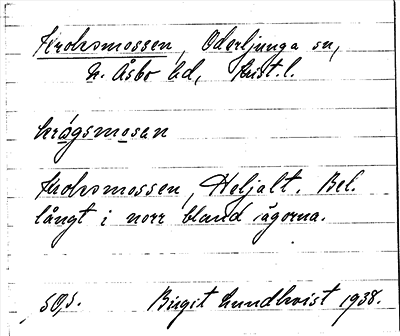 Krohsmossen, Oderljunga sn,
N. Åsbo hd, Krist. l.
krǻgsmosan
Krohsmossen, Heljalt. Bel.
långt i norr bland ägorna.
SO,s. Birgit Lundkvist 1938.